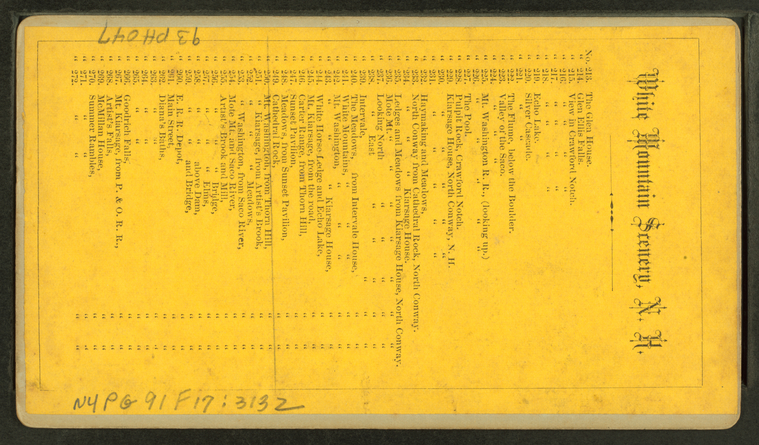 White Mountain Scenery, N. H.
No. 213. The Glen House.
" 214. Glen Ellis Falls.
" 215. View in Crawford Notch.
" 216. " " "
" 217. " " "
" 218. " " "
" 219. Echo Lake.
" 220. Silver Cascade.
" 221. " "
" 222. The Flume, below the Boulder.
" 223. Valley of the Saco.
" 224. " "
" 225. Mt. Washington R. R., (looking up.)
" 226. " "
" 227. The Pool.
" 228. Pulpit Rock, Crawford Notch.
" 229. Kiarsage House, North Conway, N. H.
" 230. " " " "
" 231. " " " "
" 232. Haymaking and Meadows,
" 233. North Conway from Cathedral Rock, North Conway.
" 234. " " " Kiarsage House.
" 235. Ledges and Meadows from Kiarsage House, North Conway.
" 236. Mote Mt. " " " "
" 237. Looking North " " "
" 238. " East " " "
" 239. Intervale, " "
" 240. The Meadows, from Intervale House, " "
" 241. White Mountains, " " " "
" 242. Mt. Washington, " " " "
" 243. " " " Kiarsage House, " "
" 244. White Horse Ledge and Echo Lake, " "
" 245. Mt. Kiarsage, from the road, " "
" 246. Carter Range, from Thorn Hill, " "
" 247. Sunset Pavilion, " "
" 248. Meadows, from Sunset Pavilion, " "
" 249. Cathedral Rock, " "
" 250. Mt. Washington, from Thorn Hill, " "
" 251. " Kiarsage, from Artist's Brook, " "
" 252. " " " Meadows, " "
" 253. " Washington, from Saco River, " "
" 254. Mote Mt. and Saco River, " "
" 255. Artist's Brook and Mill, " "
" 256. " " " Bridge, " "
" 257. " " " Elms, " "
" 258. " " above Dam, " "
" 259. " " and Bridge, " "
" 260. E. R. R. Depot, " "
" 261. Main Street, " "
" 262. Diana's Baths, " "
" 263. " " " "
" 264. " " " "
" 265. " " " "
" 266. Goodrich Falls, " "
" 267. Mt. Kiarsage, from P. & O. R. R., " "
" 268. Artist's Falls, " "
" 269. McMillan House, " "
" 270. Summer Rambles, " "
" 271. " " " "
" 272. " " " "
93 PH047
NYPG 91F17:3132